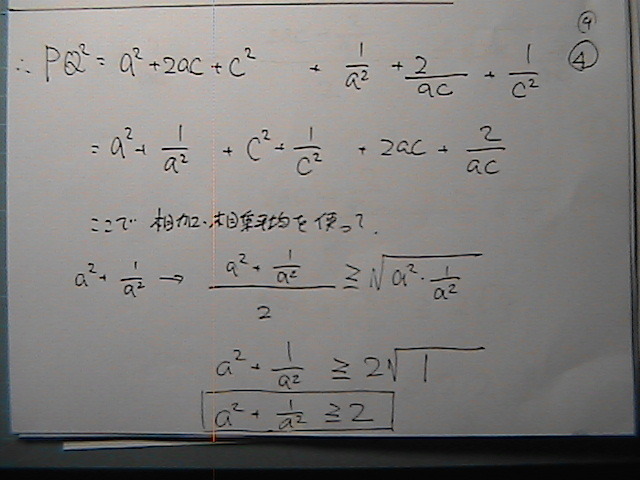 ④
④
∴ PQ² = a² + 2ac + c² + 1/a² + 2/ac + 1/c²
= a² + 1/a² + c² + 1/c² + 2ac + 2/ac
ここで 相加・相乗平均を使って.
a² + 1/a² → (a² + 1/a²)/2 ≧ √(a²・1/a²)
a² + 1/a² ≧ 2√1
a² + 1/a² ≧ 2